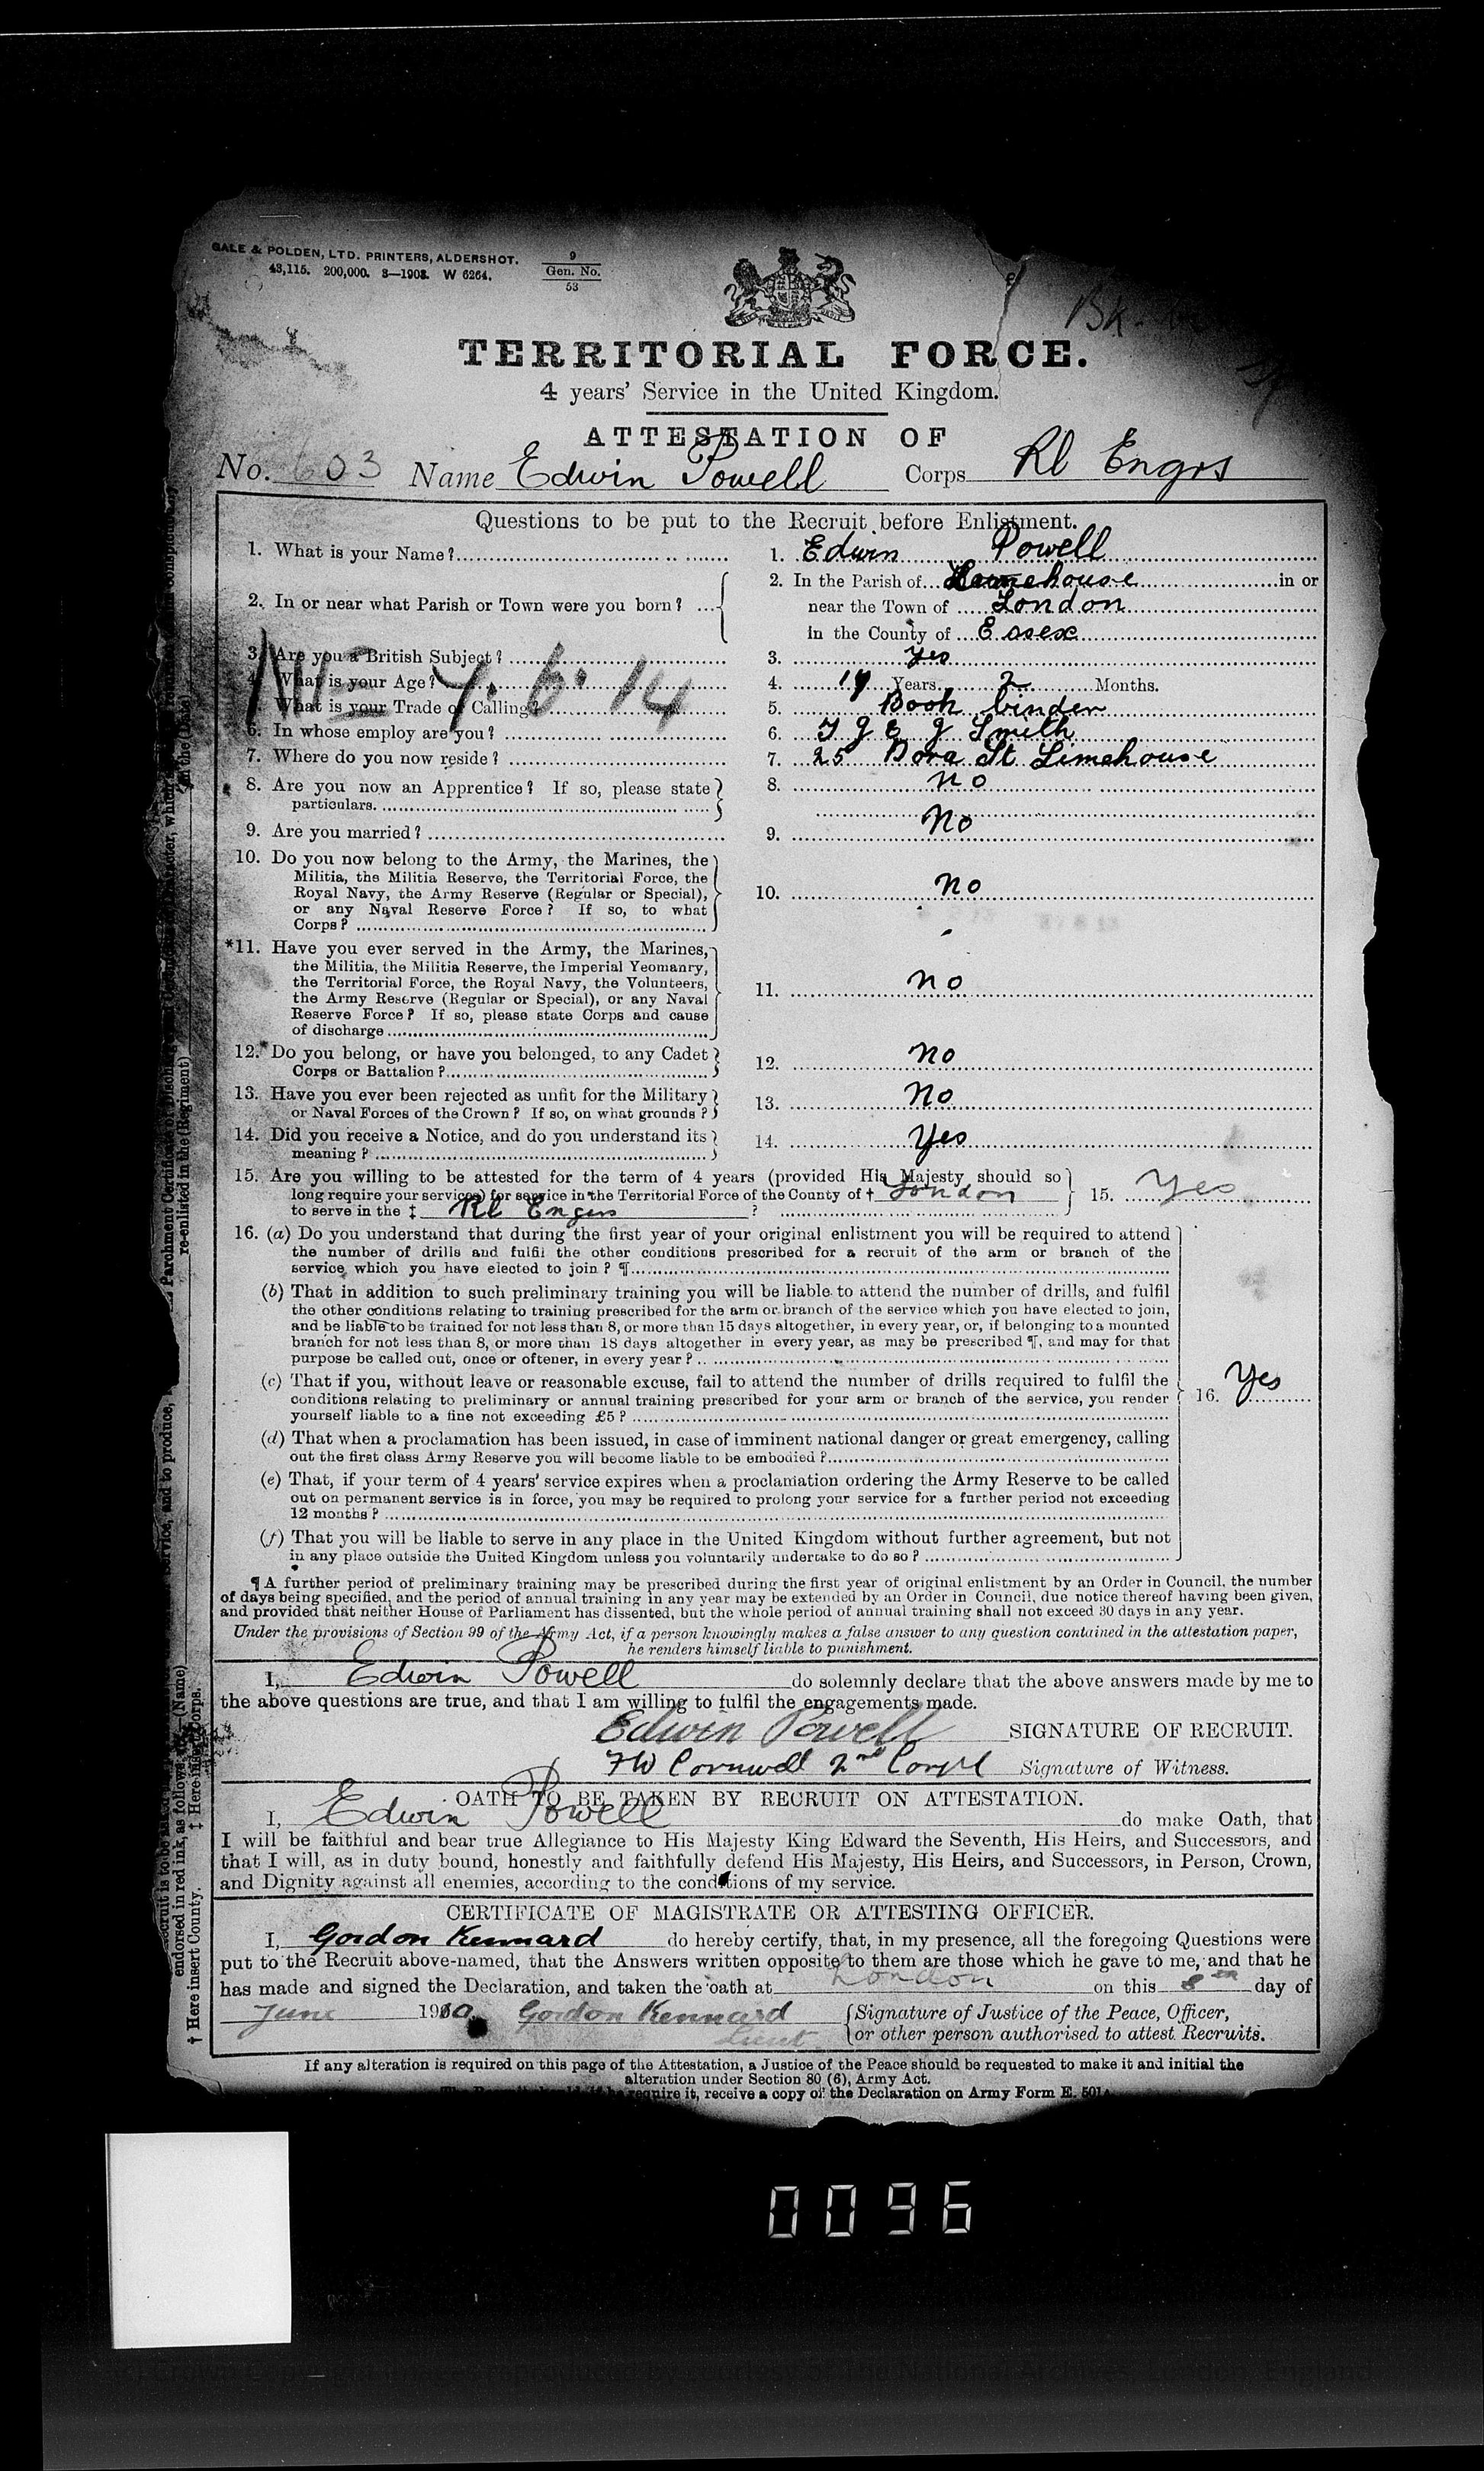 GALE & POLDEN, LTD. PRINTERS, ALDERSHOT.
43,115. 200,000. 3—1908. W 6264.
9
Gen. No.
53
TERRITORIAL FORCE.
4 years' Service in the United Kingdom.
ATTESTATION OF
No. 603 Name Edwin Powell Corps Rl Engrs
Questions to be put to the Recruit before Enlistment.
1. What is your Name? 1. Edwin Powell
2. In or near what Parish or Town were you born? 2. In the Parish of Limehouse in or
near the Town of London
in the County of Essex
3. Are you a British Subject? 3. Yes
What is your Age? 4. Years 2 Months.
What is your Trade or Calling? 5. Book binder
7. 6. 14
6. In whose employ are you? 6. Smith
7. Where do you now reside? 7. 25 Dora St Limehouse
8. Are you now an Apprentice? If so, please state 8. no
particulars.
9. Are you married? 9. No
10. Do you now belong to the Army, the Marines, the
Militia, the Militia Reserve, the Territorial Force, the
Royal Navy, the Army Reserve (Regular or Special), 10. no
or any Naval Reserve Force? If so, to what
Corps?
*11. Have you ever served in the Army, the Marines,
the Militia, the Militia Reserve, the Imperial Yeomanry,
the Territorial Force, the Royal Navy, the Volunteers, 11. no
the Army Reserve (Regular or Special), or any Naval
Reserve Force? If so, please state Corps and cause
of discharge
12.* Do you belong, or have you belonged, to any Cadet 12. no
Corps or Battalion?
13. Have you ever been rejected as unfit for the Military 13. No
or Naval Forces of the Crown? If so, on what grounds?
14. Did you receive a Notice, and do you understand its 14. Yes
meaning?
15. Are you willing to be attested for the term of 4 years (provided His Majesty should so
long require your services) for service in the Territorial Force of the County of † London 15. Yes
to serve in the ‡ Rl Engrs ?
16. (a) Do you understand that during the first year of your original enlistment you will be required to attend
the number of drills and fulfil the other conditions prescribed for a recruit of the arm or branch of the
service which you have elected to join? ¶
(b) That in addition to such preliminary training you will be liable to attend the number of drills, and fulfil
the other conditions relating to training prescribed for the arm or branch of the service which you have elected to join,
and be liable to be trained for not less than 8, or more than 15 days altogether, in every year, or, if belonging to a mounted
branch for not less than 8, or more than 18 days altogether in every year, as may be prescribed ¶, and may for that
purpose be called out, once or oftener, in every year?
(c) That if you, without leave or reasonable excuse, fail to attend the number of drills required to fulfil the
conditions relating to preliminary or annual training prescribed for your arm or branch of the service, you render 16. Yes
yourself liable to a fine not exceeding £5?
(d) That when a proclamation has been issued, in case of imminent national danger or great emergency, calling
out the first class Army Reserve you will become liable to be embodied?
(e) That, if your term of 4 years' service expires when a proclamation ordering the Army Reserve to be called
out on permanent service is in force, you may be required to prolong your service for a further period not exceeding
12 months?
(f) That you will be liable to serve in any place in the United Kingdom without further agreement, but not
in any place outside the United Kingdom unless you voluntarily undertake to do so?
¶ A further period of preliminary training may be prescribed during the first year of original enlistment by an Order in Council, the number
of days being specified, and the period of annual training in any year may be extended by an Order in Council, due notice thereof having been given,
and provided that neither House of Parliament has dissented, but the whole period of annual training shall not exceed 30 days in any year.
Under the provisions of Section 99 of the Army Act, if a person knowingly makes a false answer to any question contained in the attestation paper,
he renders himself liable to punishment.
I, Edwin Powell do solemnly declare that the above answers made by me to
the above questions are true, and that I am willing to fulfil the engagements made.
Edwin Powell SIGNATURE OF RECRUIT.
FW Cornwell 2nd Corpl Signature of Witness.
OATH TO BE TAKEN BY RECRUIT ON ATTESTATION.
I, Edwin Powell do make Oath, that
I will be faithful and bear true Allegiance to His Majesty King Edward the Seventh, His Heirs, and Successors, and
that I will, as in duty bound, honestly and faithfully defend His Majesty, His Heirs, and Successors, in Person, Crown,
and Dignity against all enemies, according to the conditions of my service.
CERTIFICATE OF MAGISTRATE OR ATTESTING OFFICER.
I, Gordon Kennard do hereby certify, that, in my presence, all the foregoing Questions were
put to the Recruit above-named, that the Answers written opposite to them are those which he gave to me, and that he
has made and signed the Declaration, and taken the oath at London on this 8th day of
June 1910. Gordon Kennard Signature of Justice of the Peace, Officer,
Lieut or other person authorised to attest Recruits.
If any alteration is required on this page of the Attestation, a Justice of the Peace should be requested to make it and initial the
alteration under Section 80 (6), Army Act.
require it, receive a copy of the Declaration on Army Form E. 501A
Parchment Certificate of
re-enlisted in the (Regiment)
service, and to produce,
endorsed in red ink, as follows, (Name)
† Here insert County. ‡ Here insert Corps.
0096